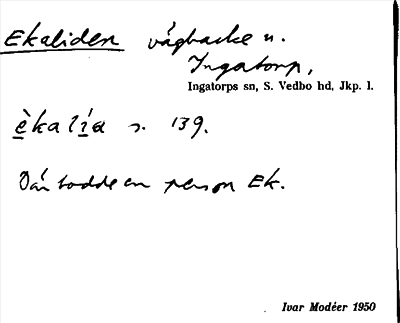 Ekaliden vägbacke u.
Ingatorp,
Ingatorps sn, S. Vedbo hd, Jkp. l.
èkalía s. 139.
Där bodde en person Ek.
Ivar Modéer 1950